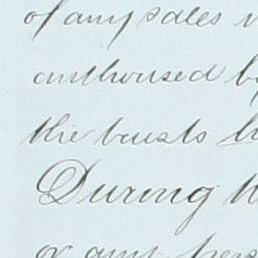 of any sales
authorised by
the trusts
During
or any